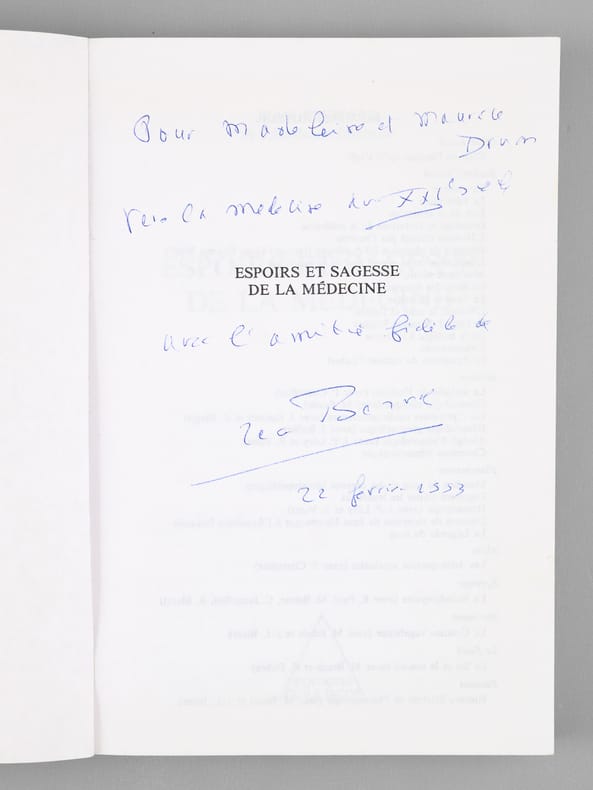 Pour Madeleine et Maurice
Druon
Vers la médecine du XXIe siècle
ESPOIRS ET SAGESSE
DE LA MÉDECINE
avec l'amitié fidèle de
Jean Bernard
22 février 1993